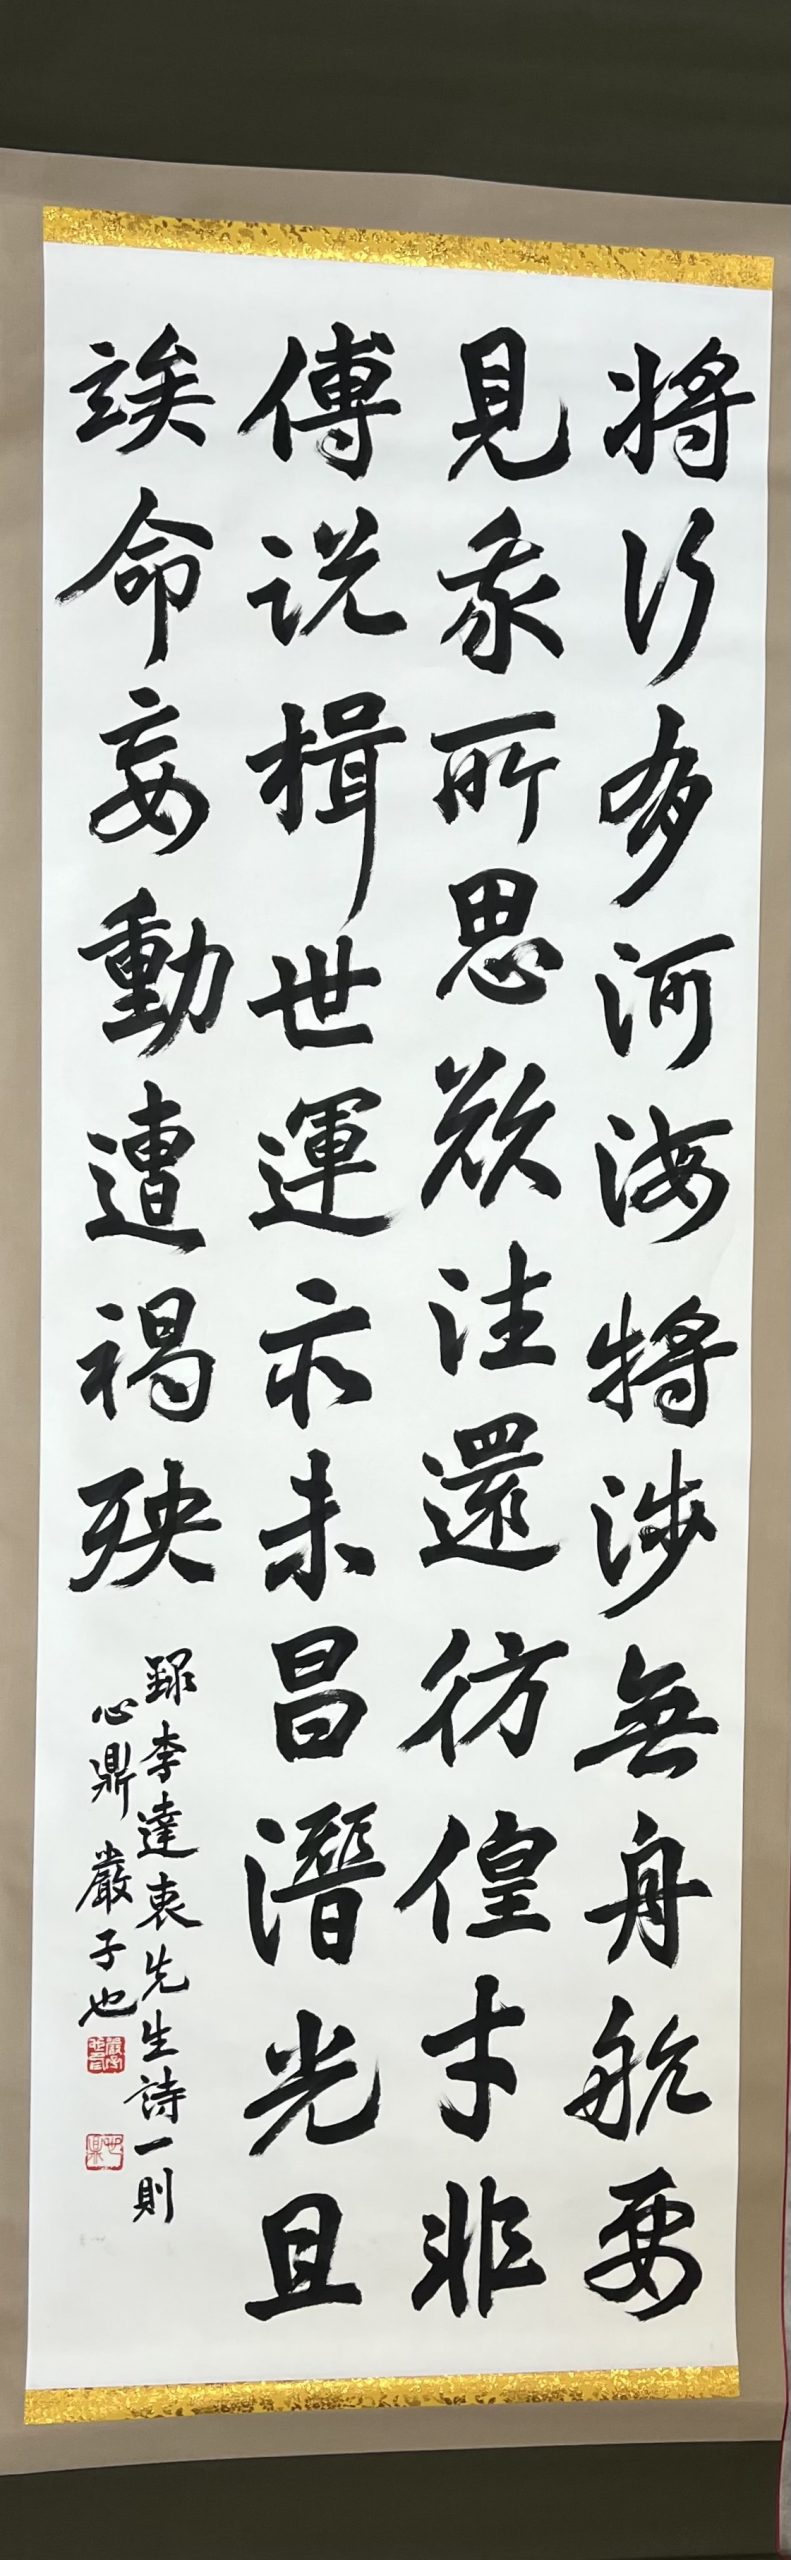 將行多河海將涉無舟航要
見我所思欲往還彷徨才非
傅說楫世運亦未昌潛光且
竢命妄動遭禍殃
錄李達衷先生詩一則
心鼎嚴子也